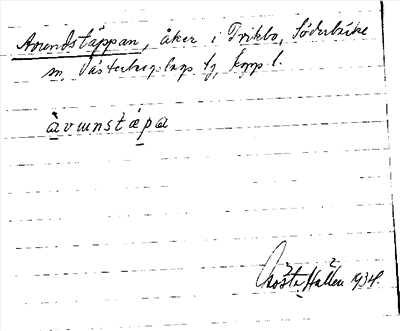 Avundstäppan, åker i Trikbo, Söderbärke
sn, Västerbergslags tg, Kopp l.
àvɯnstɛ́pa
Gösta Hallén 1934.